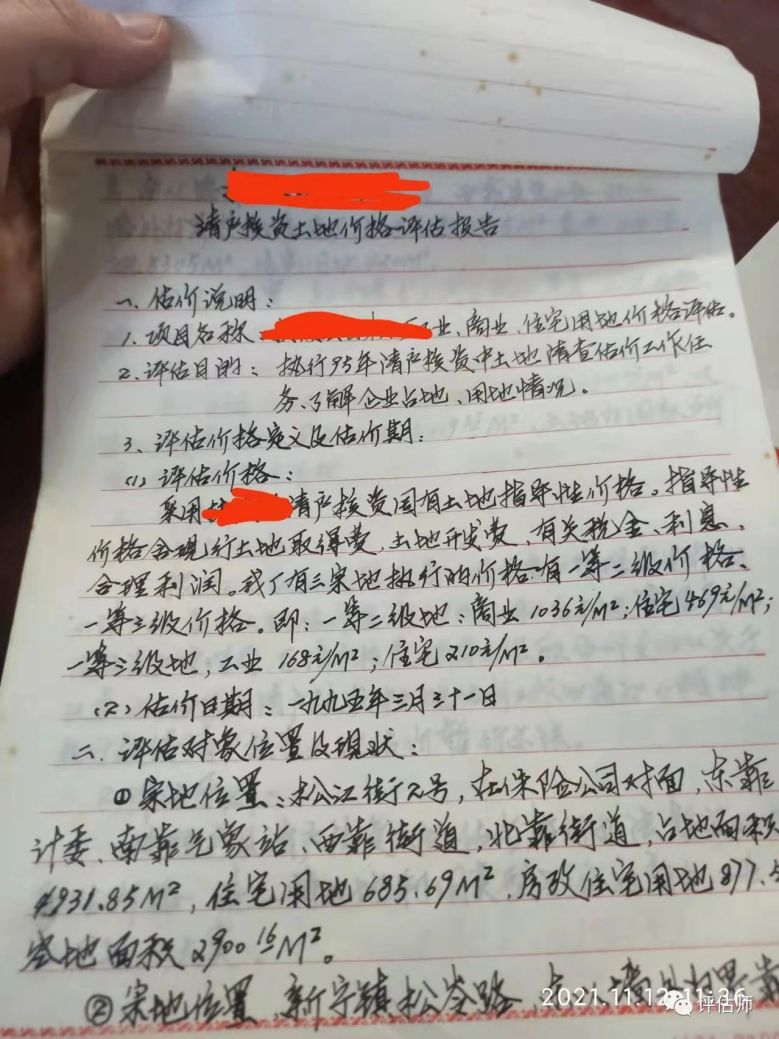 清产核资土地价格评估报告
一、估价说明：
1、项目名称：业、商业、住宅用地价格评估。
2、评估目的：执行95年清产核资中土地清查估价工作任
务、了解企业占地、用地情况。
3、评估价格定义及估价期：
（1）评估价格：
采用清产核资国有土地指导性价格。指导性
价格含现行土地取得费，土地开发费，有关税金、利息、
合理利润。我厂有三宗地执行的价格有一等二级价格、
一等三级价格。即：一等二级地：商业1036元/M²；住宅469元/M²；
一等三级地，工业168元/M²；住宅210元/M²。
（2）估价日期：一九九五年三月三十一日
二、评估对象位置及现状：
①宗地位置：松江街2号，在保险公司对面，东靠
计委、南靠气象站、西靠街道，北靠街道，占地面积
4931.85M²，住宅用地685.69M²，房改住宅用地877.5
空地面积2900.16M²。
②宗地位置，新宁镇松岺路
2021.11.12 11:36
评估师